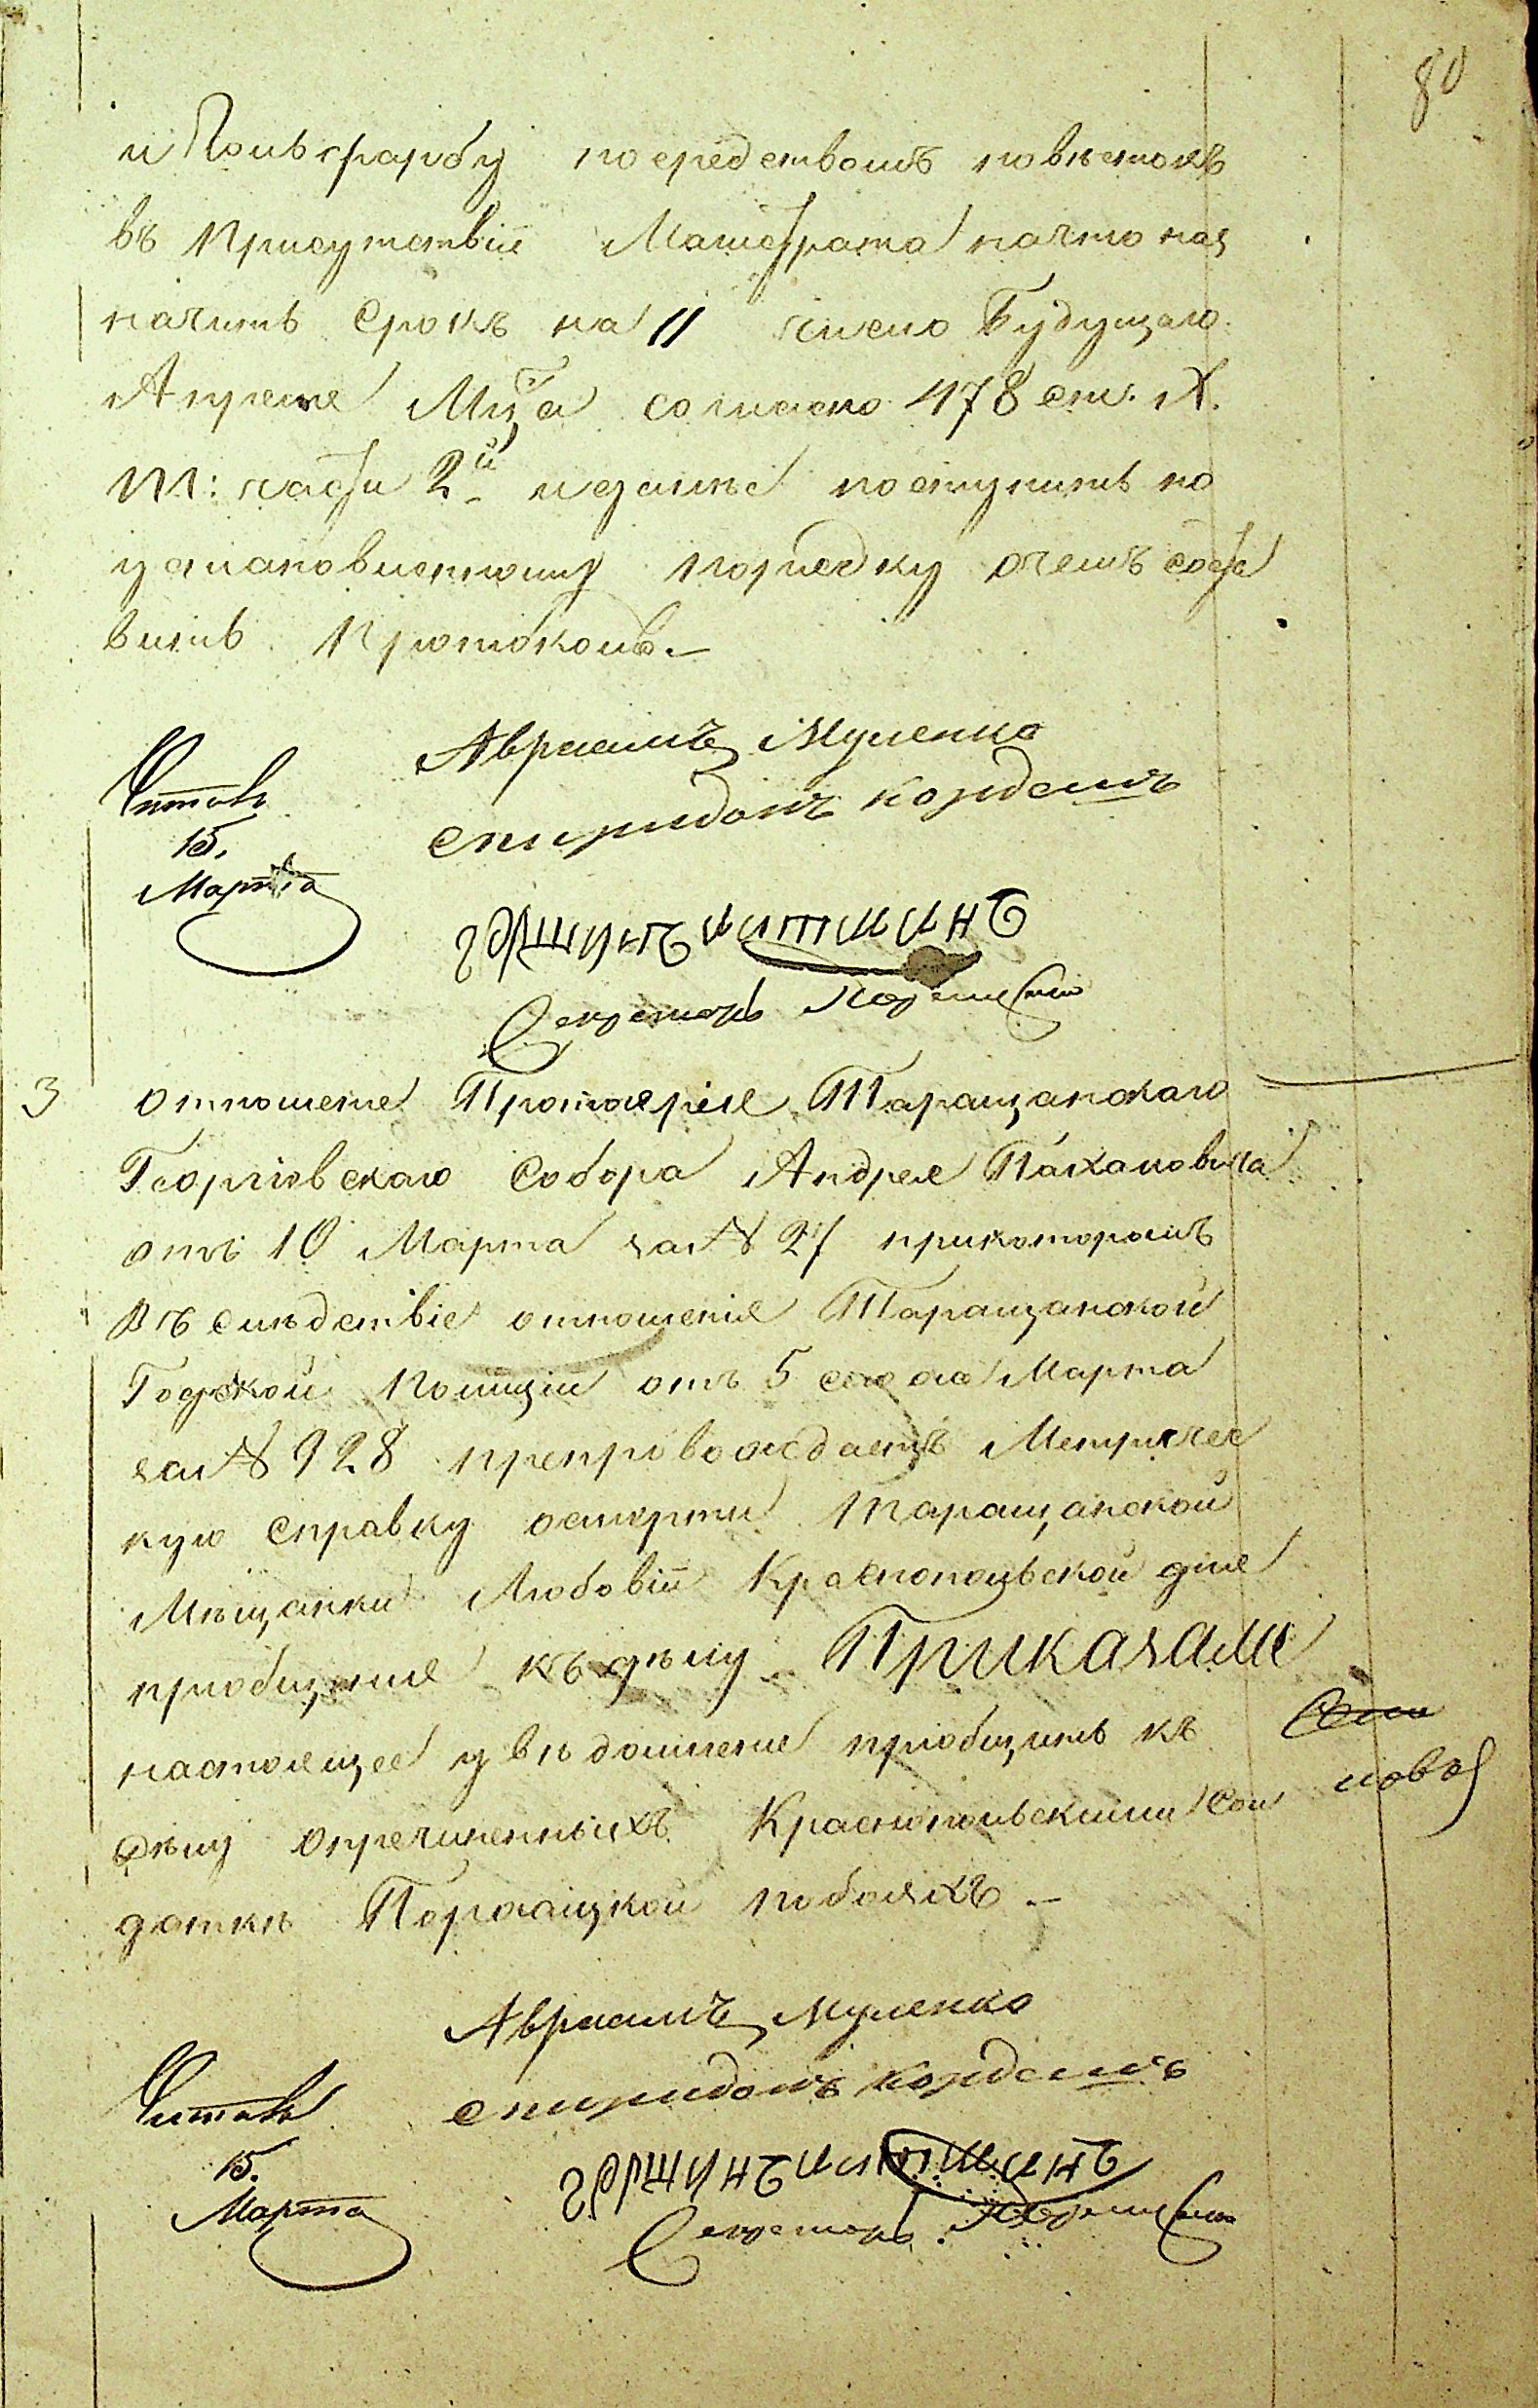 80
и Гольдфарбу посредствомъ повѣстокъ
въ присутствіи Магистрата на что наз
начить срокъ на 11 число Будущаго
Апреля М-ца согласно 478 ст. X.
т: части 2й и далѣе поступить по
установленному порядку о чемъ соста
вить Протоколъ. —
Авраамъ Муленко
Читалъ
Спиридонъ
15.
Марта
Секретарь
3 отношение Протоерея Таращанскаго
Георгіевскаго Собора Андрея
отъ 10 Марта за № 27 при которомъ
въ следствіе отношенія Таращанской
Городской полиціи отъ 5 сего Марта
за № 928 препровождаетъ Метричес
кую справку о смерти Таращанской
Мѣщанки Любовіи Краснопольской для
пріобщения къ дѣлу — Приказали
настоящее увѣдомление пріобщить къ
дѣлу о причиненныхъ Краснопольскими Сол
новой
даткѣ побояхъ —
Авраамъ Муленко
Читалъ
Спиридонъ
15.
Марта
Секретарь